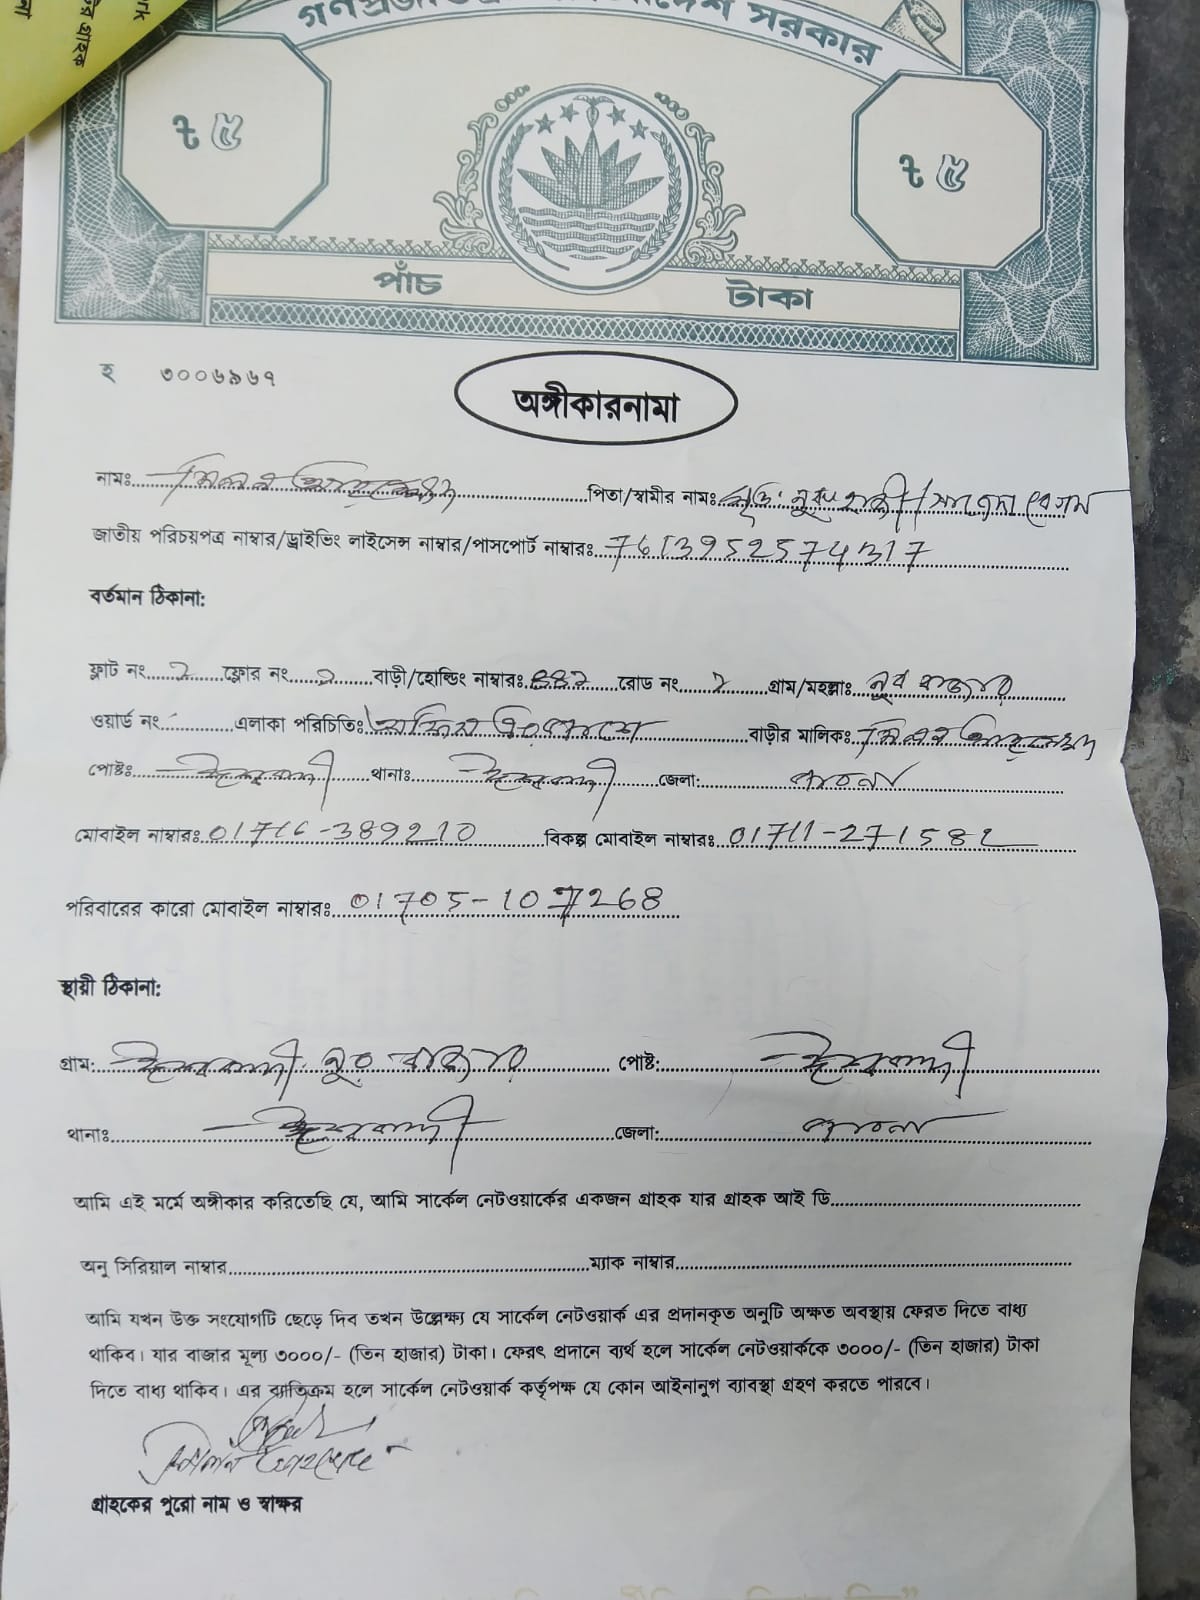 গ্রাহক
সরকার
৳ ৫
৳ ৫
পাঁচ টাকা
হ ৩০০৬৯৬৭
অঙ্গীকারনামা
নামঃ মিলন আহম্মেদ পিতা/স্বামীর নামঃ মৃত: নূরুল হক/ বেগম
জাতীয় পরিচয়পত্র নাম্বার/ড্রাইভিং লাইসেন্স নাম্বার/পাসপোর্ট নাম্বারঃ 7613952574317
বর্তমান ঠিকানা:
ফ্লাট নং ২ ফ্লোর নং ২ বাড়ী/হোল্ডিং নাম্বারঃ রোড নং গ্রাম/মহল্লাঃ নূর
ওয়ার্ড নং এলাকা পরিচিতিঃ বাড়ীর মালিকঃ মিলন আহম্মেদ
পোষ্টঃ ঈশ্বরদী থানাঃ ঈশ্বরদী জেলা: পাবনা
মোবাইল নাম্বারঃ 01716-389210 বিকল্প মোবাইল নাম্বারঃ 01711-271582
পরিবারের কারো মোবাইল নাম্বারঃ 01705-107268
স্থায়ী ঠিকানা:
গ্রাম: ঈশ্বরদী নূর পোষ্ট: ঈশ্বরদী
থানাঃ ঈশ্বরদী জেলা: পাবনা
আমি এই মর্মে অঙ্গীকার করিতেছি যে, আমি সার্কেল নেটওয়ার্কের একজন গ্রাহক যার গ্রাহক আই ডি
অনু সিরিয়াল নাম্বার ম্যাক নাম্বার
আমি যখন উক্ত সংযোগটি ছেড়ে দিব তখন উল্লেক্ষ্য যে সার্কেল নেটওয়ার্ক এর প্রদানকৃত অনুটি অক্ষত অবস্থায় ফেরত দিতে বাধ্য
থাকিব। যার বাজার মূল্য ৩০০০/- (তিন হাজার) টাকা। ফেরৎ প্রদানে ব্যর্থ হলে সার্কেল নেটওয়ার্ককে ৩০০০/- (তিন হাজার) টাকা
দিতে বাধ্য থাকিব। এর ব্যতিক্রম হলে সার্কেল নেটওয়ার্ক কর্তৃপক্ষ যে কোন আইনানুগ ব্যাবস্থা গ্রহণ করতে পারবে।
মিলন আহম্মেদ
গ্রাহকের পুরো নাম ও স্বাক্ষর